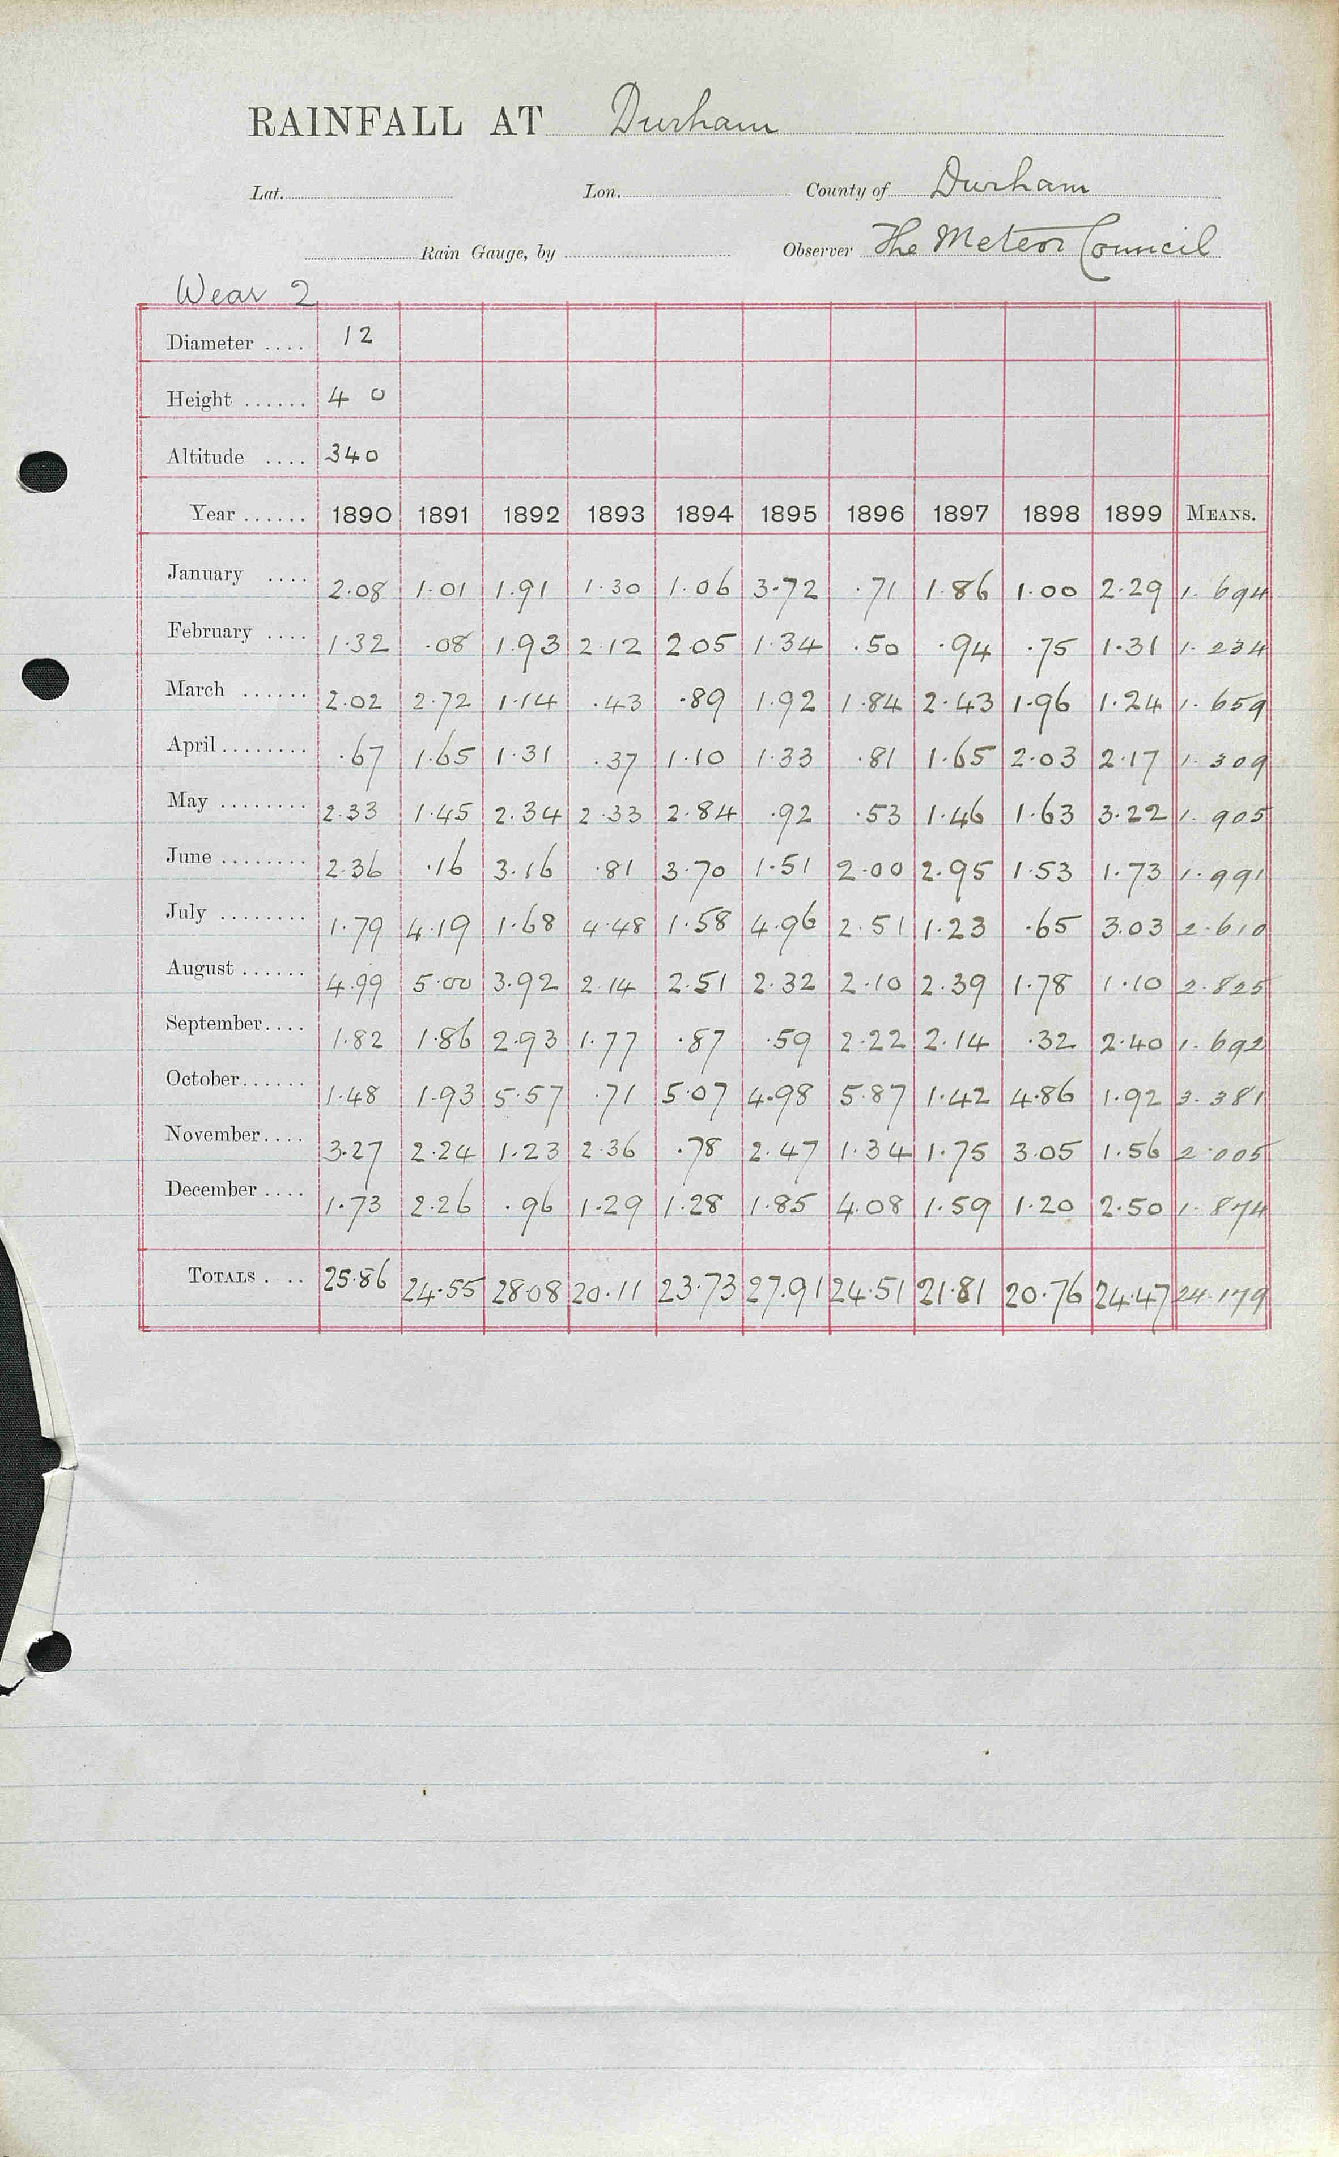 RAINFALL AT Durham
Lat. Lon. County of Durham
Rain Gauge, by Observer The Meteor Council
Wear 2
Diameter .... 12
Height ...... 4 0
Altitude .... 340
Year ...... 1890 1891 1892 1893 1894 1895 1896 1897 1898 1899 MEANS.
January .... 2.08 1.01 1.91 1.30 1.06 3.72 .71 1.86 1.00 2.29 1.694
February .... 1.32 .08 1.93 2.12 2.05 1.34 .50 .94 .75 1.31 1.234
March ...... 2.02 2.72 1.14 .43 .89 1.92 1.84 2.43 1.96 1.24 1.659
April ........ .67 1.65 1.31 .37 1.10 1.33 .81 1.65 2.03 2.17 1.309
May ........ 2.33 1.45 2.34 2.33 2.84 .92 .53 1.46 1.63 3.22 1.905
June ........ 2.36 .16 3.16 .81 3.70 1.51 2.00 2.95 1.53 1.73 1.991
July ........ 1.79 4.19 1.68 4.48 1.58 4.96 2.51 1.23 .65 3.03 2.610
August ...... 4.99 5.00 3.92 2.14 2.51 2.32 2.10 2.39 1.78 1.10 2.825
September.... 1.82 1.86 2.93 1.77 .87 .59 2.22 2.14 .32 2.40 1.692
October...... 1.48 1.93 5.57 .71 5.07 4.98 5.87 1.42 4.86 1.92 3.381
November.... 3.27 2.24 1.23 2.36 .78 2.47 1.34 1.75 3.05 1.56 2.005
December .... 1.73 2.26 .96 1.29 1.28 1.85 4.08 1.59 1.20 2.50 1.874
TOTALS .... 25.86 24.55 28.08 20.11 23.73 27.91 24.51 21.81 20.76 24.47 24.179